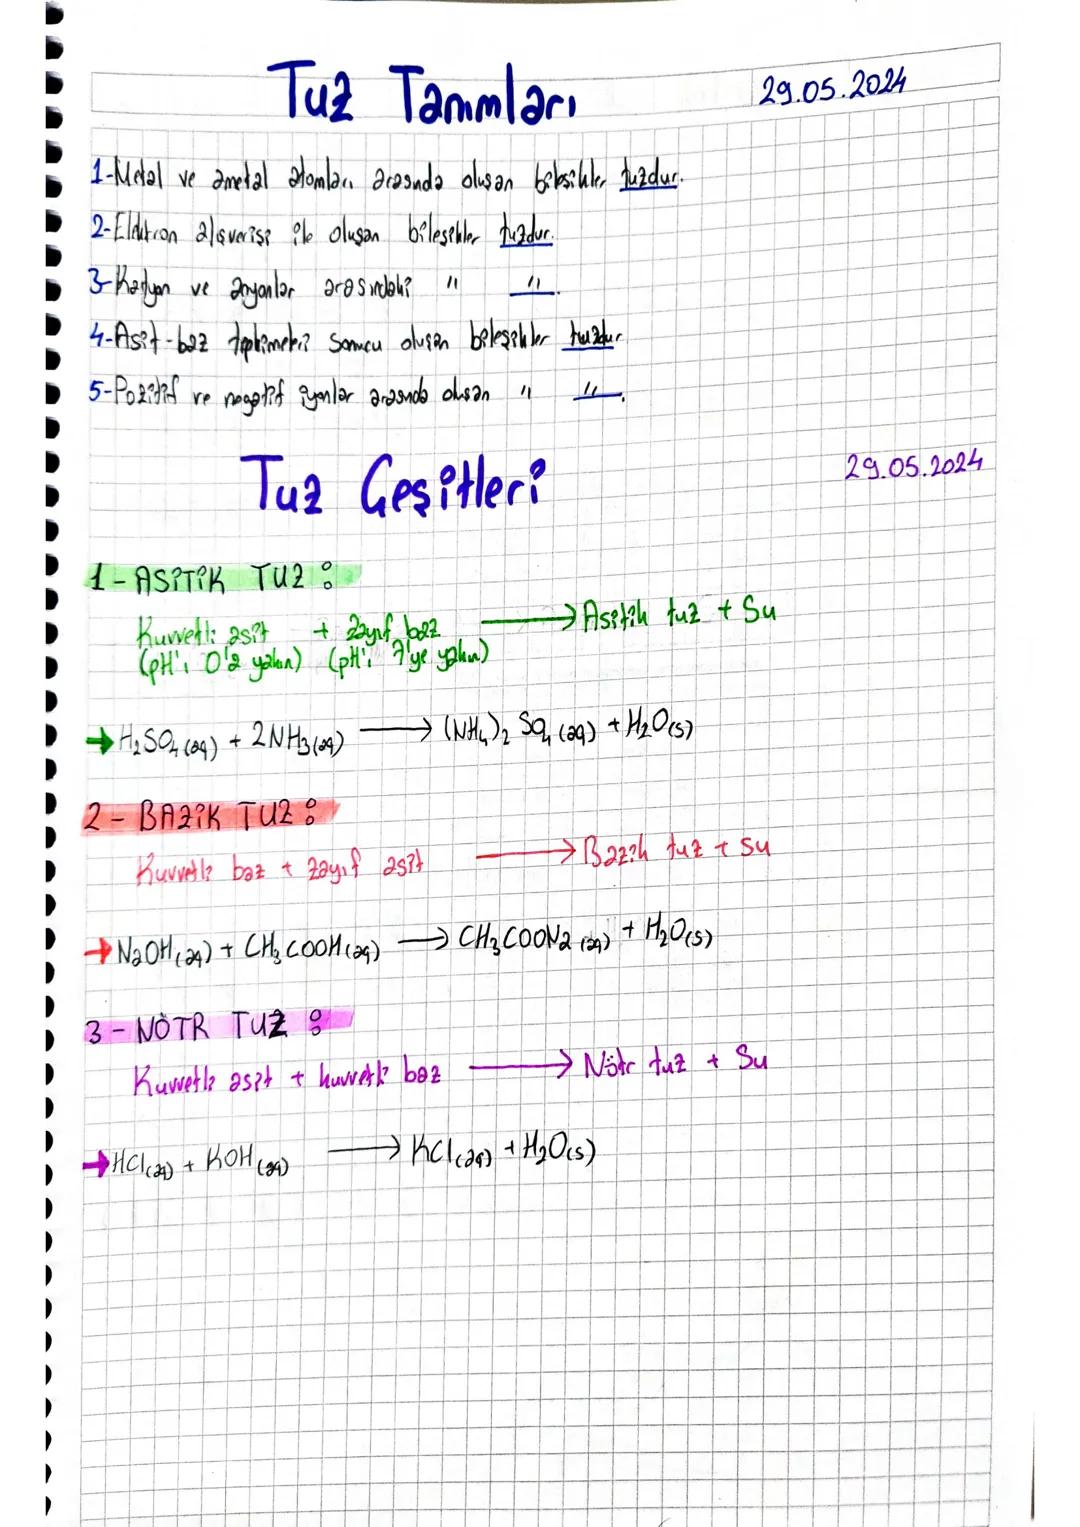 Tuz Tanımları
29.05.2024
1-Metal ve ametal atomları arasında oluşan bileşikler tuzdur.
2-Elektron alışverişi ile oluşan bileşikler tuzdur.
3-Katyon ve anyonlar arasındaki " ".
4-Asit-baz tepkimeleri sonucu oluşan bileşikler tuzdur
5-Pozitif ve negatif iyonlar arasında oluşan " ".
Tuz Çeşitleri
29.05.2024
1-ASİTİK TUZ:
Kuvvetli asit + zayıf baz → Asitik tuz + Su
(pH'ı 0'a yakın) (pH'ı 7'ye yakın)
→ H₂SO₄(aq) + 2NH₃(aq) → (NH₄)₂ SO₄ (aq) + H₂O(s)
2-BAZİK TUZ:
Kuvvetli baz + zayıf asit → Bazik tuz + su
→ NaOH(aq) + CH₃COOH(aq) → CH₃COONa (aq) + H₂O(s)
3-NÖTR TUZ:
Kuvvetli asit + kuvvetli baz → Nötr tuz + Su
→ HCl(aq) + KOH(aq) → KCl(aq) + H₂O(s)